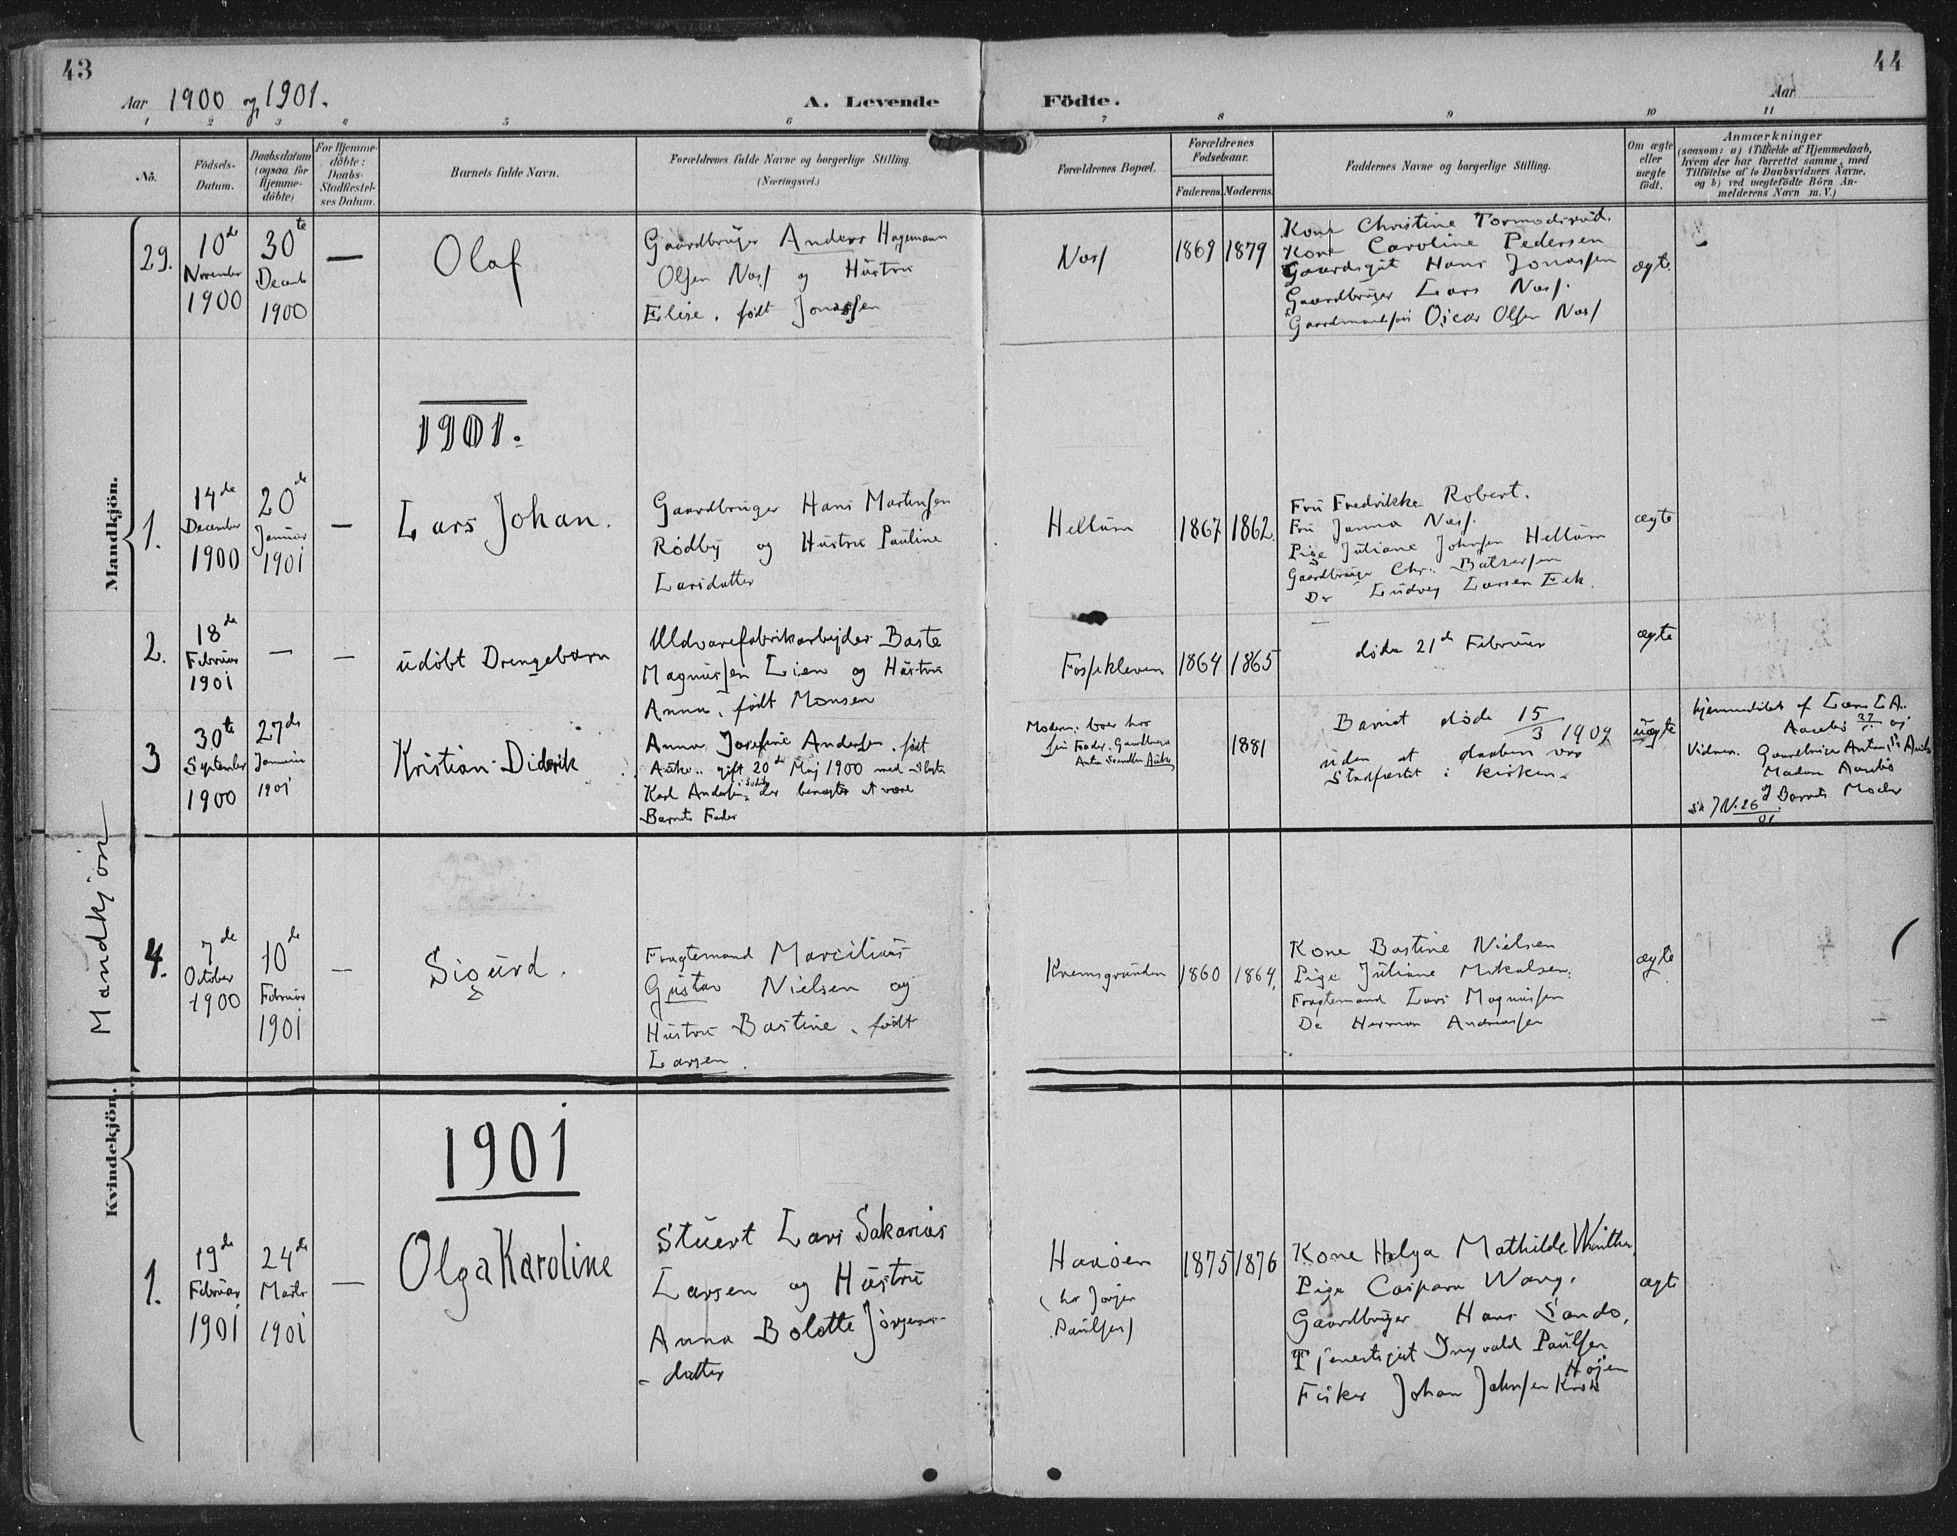 43
44
Aar 1900 og 1901.
A. Levende Födte.
Aar
1 2 3 4 5 6 7 8 9 10 11
No.
Födsels-Datum.
Daabsdatum (ogsaa for Hjemmedöbte)
For Hjemmedöbte: Daabs-Stadfæstelses Datum.
Barnets fulde Navn.
Forældrenes fulde Navne og borgerlige Stilling.
(Næringsvei.)
Forældrenes Bopæl.
Forældrenes Födselsaar.
Faderens. Moderens.
Faddernes Navne og borgerlige Stilling.
Om ægte eller uægte födt.
Anmærkninger
(saasom: a) i Tilfælde af Hjemmedaab,
hvem der har forrettet samme, med
Tilföielse af to Daabsvidners Navne,
og b) ved uægtefödte Börn An-
melderens Navn m. V.)
Mandkjön.
29.
10de November 1900
30te Decemb 1900
—
Olaf
Gaardbruger Anders Hagemann
Olsen Næs og Hustru
Elise, født Jonassen
Næs
1869 1879
Kone Christine Tormodsrød.
Kone Caroline Pedersen
Gaardsgut Hans Jonassen
Gaardbruger Lars Næs.
Gaardmandssøn Oscar Olsen Næs
ægte.
1901.
1.
14de December 1900
20de Januar 1901
—
Lars Johan.
Gaardbruger Hans Martinsen
Rødby og Hustru Pauline
Larsdatter
Hellum
1867 1862.
Fru Fredrikke Robert.
Fru Janna Næs.
Pige Juliane Johnsen Hellum
Gaardbruger Chr. Baltsersen
Do Ludvig Larsen Eek.
ægte
2.
18de Februar 1901
—
—
udøbt Drengebarn
Uldvarefabrikarbejder Baste
Magnussen Lien og Hustru
Anna, født Monsen
Fossekleven
1864 1865
døde 21de Februar
ægte
3
30te September 1900
27de Januar 1901
Kristian Diderik
Anna Josefine Andersen, født
Auke, gift 20de Maj 1900 med
Karl Andersen, der benægter at være
Barnets Fader
Modern. boer hos
sin Fader, Gaardbruger
Auke
1881
Barnet døde 15/3 1902
uden at daaben var
Stadfæstet i kirken.
uægte
hjemmedøbt af
Vidner. Gaardbruger
Madam
og Barnets Moder
No. 26/01
Mandkjön
4.
7de October 1900
10de Februar 1901
—
Sigurd.
Fragtemand Marcilius
Gustav Nielsen og
Hustru Bastine, født
Larsen.
Knemsgrunden
1860 1864.
Kone Bastine Nielsen
Pige Juliane Mikalsen.
Fragtemand Lars Magnussen
Do Herman Andreassen
ægte
Kvindekjön.
1901
1.
19de Februar 1901
24de Marts 1901
—
Olga Karoline
Stuert Lars Sakarias
Larsen og Hustru
Anna Bolette Jörgens-
datter
Haaøen
1875 1876
(hos Jörgen
Paulsen)
Kone Helga Mathilde Winther,
Pige Caspara Wang,
Gaardbruger Hans Sando,
Tjenestgut Ingvald Paulsen
Fisker Johan Johnsen
ægte